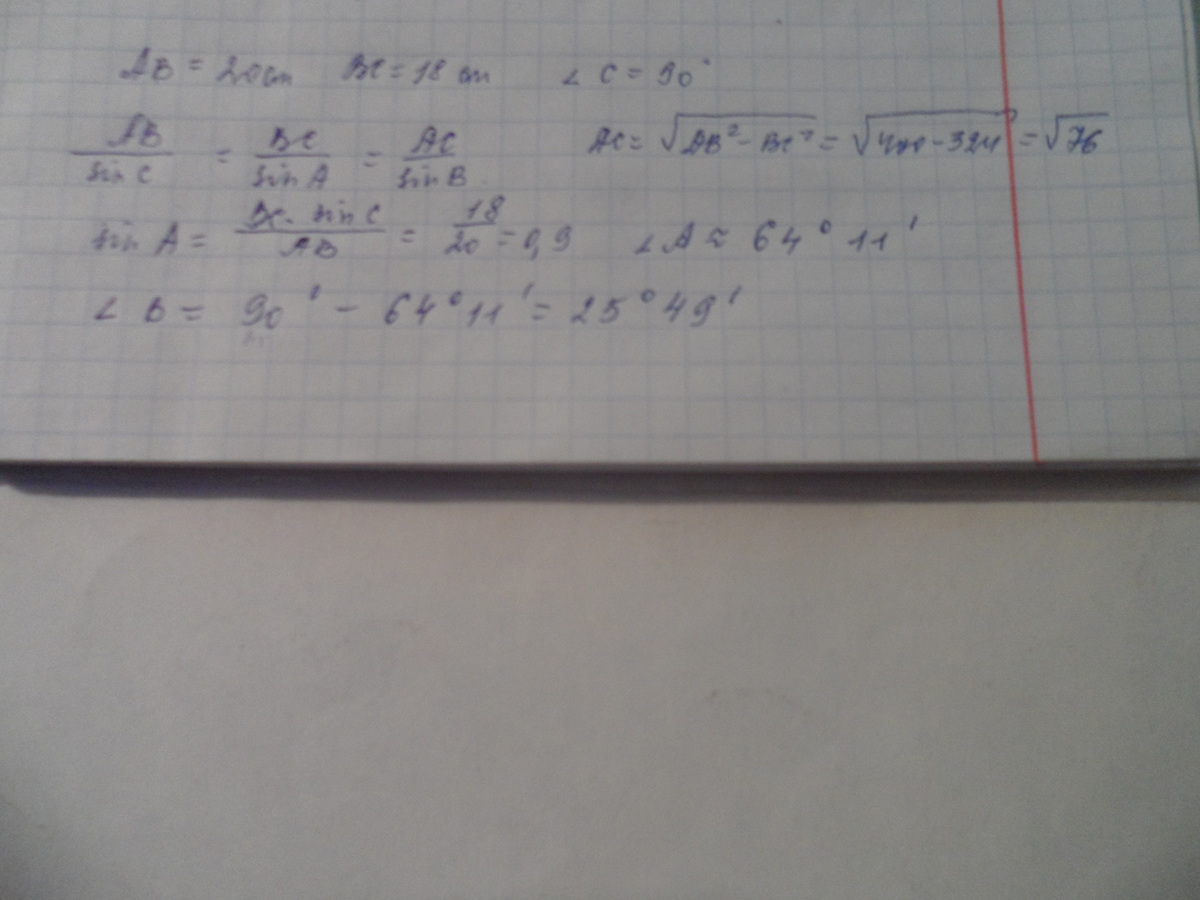 AB = 20 cm BC = 18 cm ∠ C = 90°
AB/sin C = BC/sin A = AC/sin B AC = √(AB² - BC²) = √(400 - 324) = √76
sin A = BC · sin C/AB = 18/20 = 0,9 ∠ A ≈ 64° 11'
∠ B = 90° - 64° 11' = 25° 49'